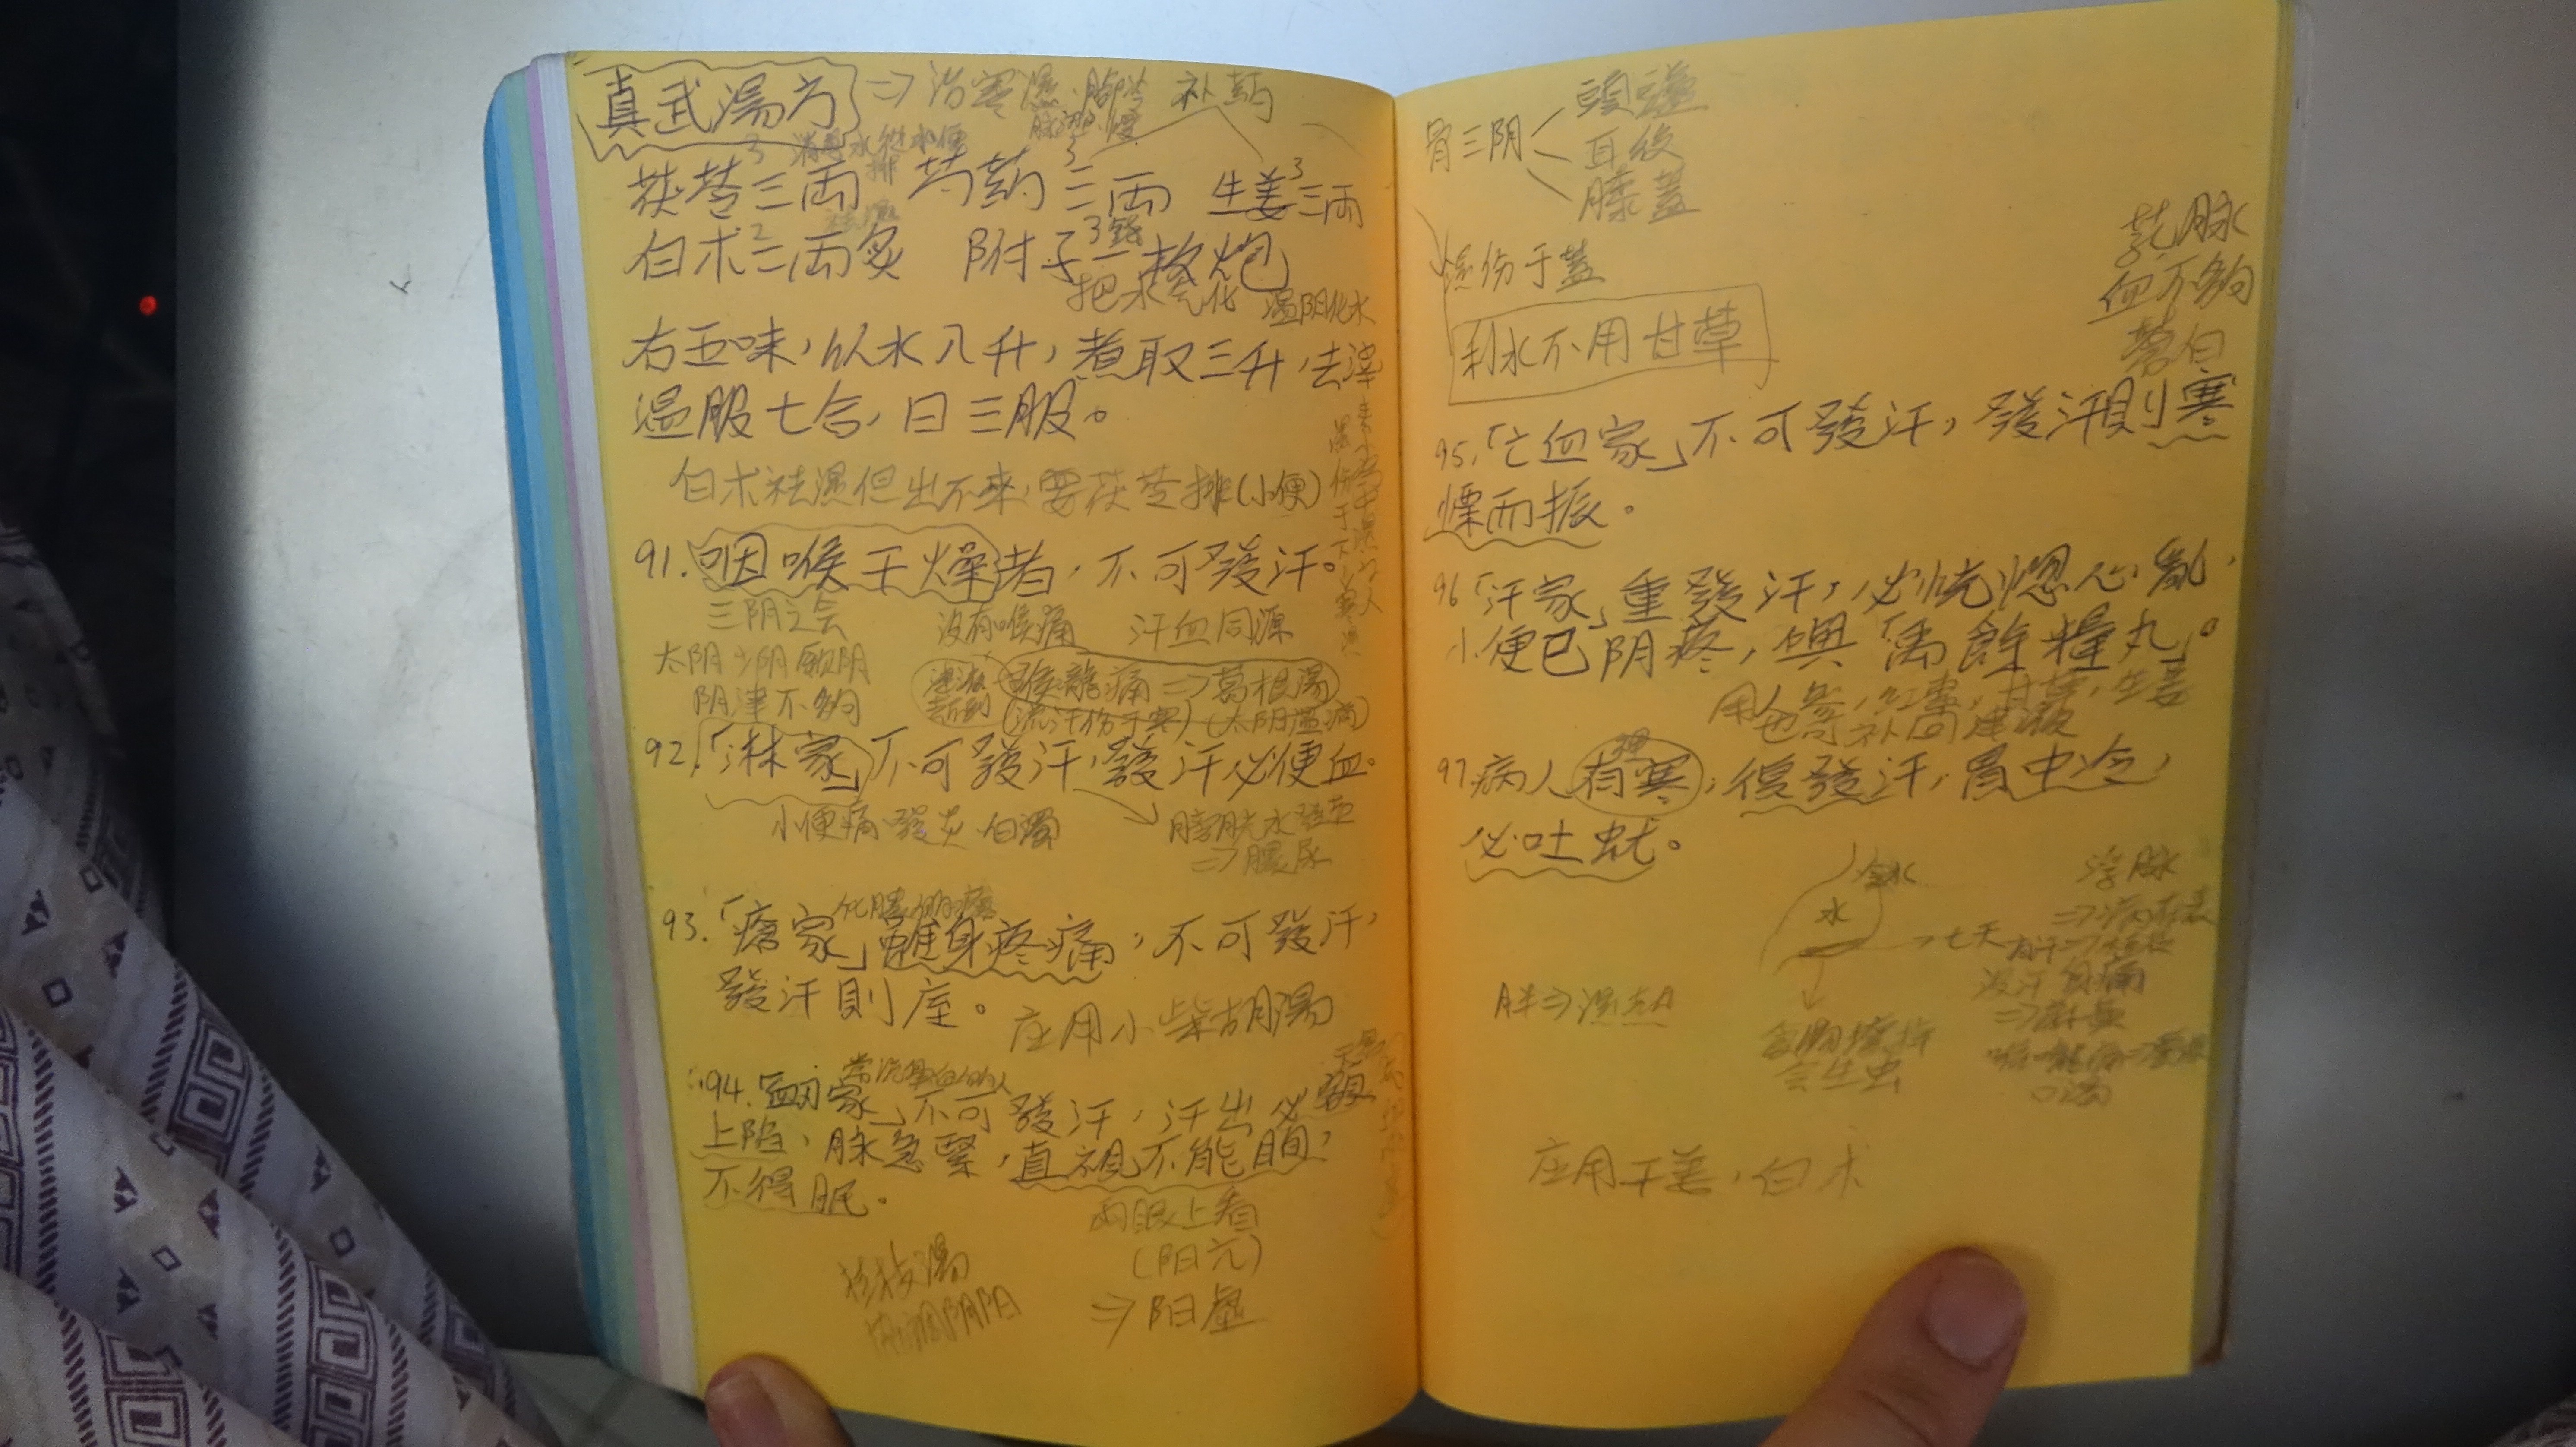 真武湯方 ⇒ 治寒濕 補药
茯苓三兩 芍药三兩 生姜三兩
白术二兩炙 附子一枚炮
3錢
把水氣化 溫阴化水
右五味，以水八升，煮取三升，去滓
溫服七合，日三服。
白术袪濕但出不來，要茯苓排(小便)
91.咽喉干燥者，不可發汗。
三阴之会 没有喉痛 汗血同源
太阴 少阴 厥阴
阴津不夠
喉嚨痛⇒葛根湯
(流汗伤于寒)
92.「淋家」不可發汗，發汗必便血。
小便痛 發炎 白濁
膀胱水
⇒膿尿
93.「瘡家」雖身疼痛，不可發汗，
發汗則痓。 应用小柴胡湯
94.「衂家」不可發汗，汗出必額
上陷，脉急緊，直視不能眴，
不得眠。
兩眼上看
(阳亢)
⇒阳虛
桂枝湯
調阴阳
骨三阴
耳後
膝蓋
利水不用甘草
芤脉
血不夠
95.「亡血家」不可發汗，發汗則寒
慄而振。
96「汗家」重發汗，必恍惚心亂，
小便已阴疼，與「禹餘糧丸」。
用人參，红棗，甘草，生姜
也可补回津液
97.病人有寒，復發汗，胃中冷，
必吐蚘。
冷水
水
七天
会生虫
浮脉
胖⇒濕
口渴
应用干姜，白术